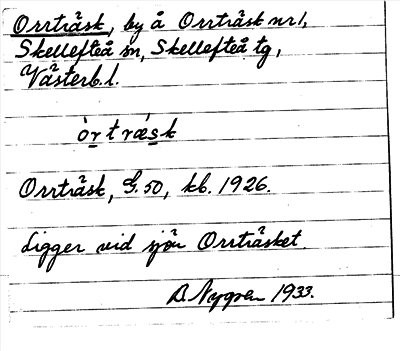 Orrträsk, by å Orrträsk nr 1,
Skellefteå sn, Skellefteå tg,
Västerb. l.
òr̲trǽs̲k
Orrträsk, G. 50, kb. 1926.
Ligger vid sjön Orrträsket.
B. Nygren 1933.